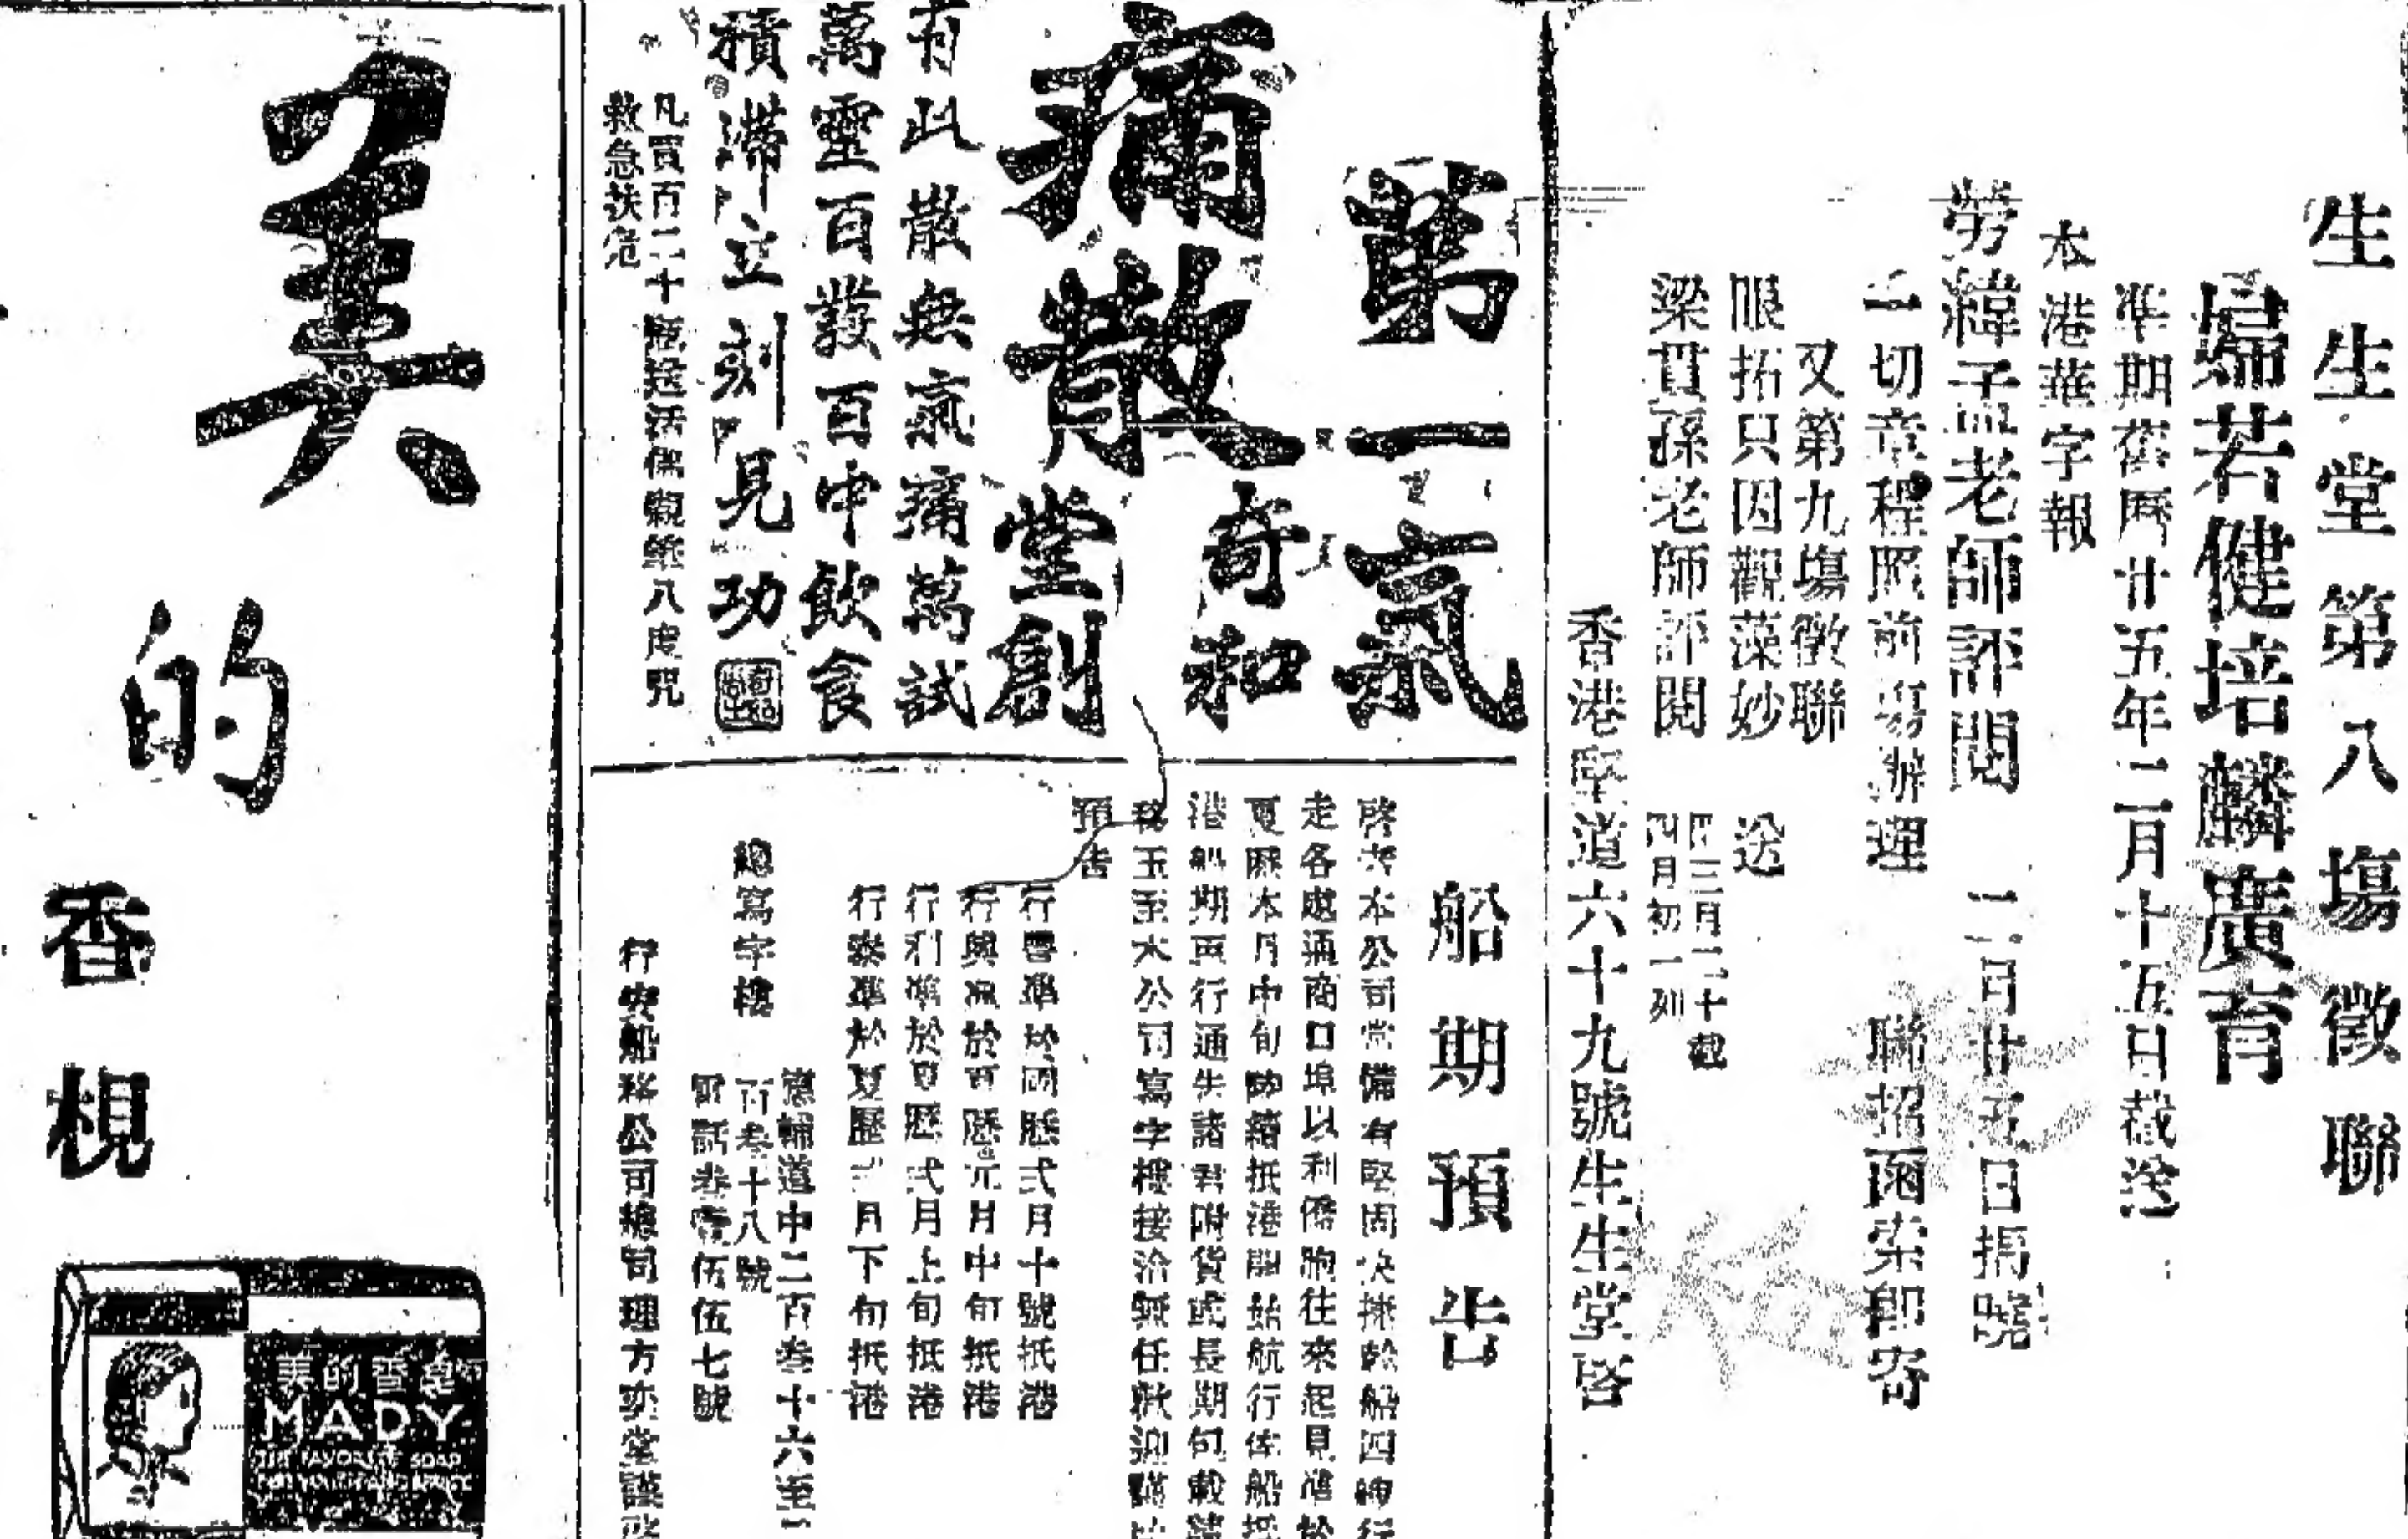 生生堂第八場徵聯
歸若健培麟廣育
準期舊曆廿五年二月十五日截送
本港華字報
勞緯孟老師評閱 二月廿五日揭曉
一切章程照前場辦理 聯招函索即寄
又第九場徵聯
眼拓只因觀藻妙 送
梁貫孫老師評閱
三月二十截
四月初一列
香港堅道六十九號生生堂啓
第一氣
痛散
奇和
堂創
有此散無氣痛萬試
萬靈百發百中飲食
積滯立刻見功
凡買百二十
救急扶危
船期預告
啓者本公司常備有堅固快捷輪船四艘行
走各處通商口埠以利僑胞往來起見準於
夏曆本月中旬陸續抵港開始航行
港船期再行通告諸君附貨或長期包載
移玉至本公司寫字樓接洽無任歡迎
預告
行雲準於國曆弍月十號抵港
行興準於夏曆元月中旬抵港
行利準於夏曆弍月上旬抵港
行泰準於夏歷弍月下旬抵港
總寫字樓
德輔道中二百叁十六至二
百叁十八號
電話叁壹伍伍七號
行安船務公司總司理方奕堂謹啓
美的香梘
美的香皂
MADY
THE FAVORITE SOAP